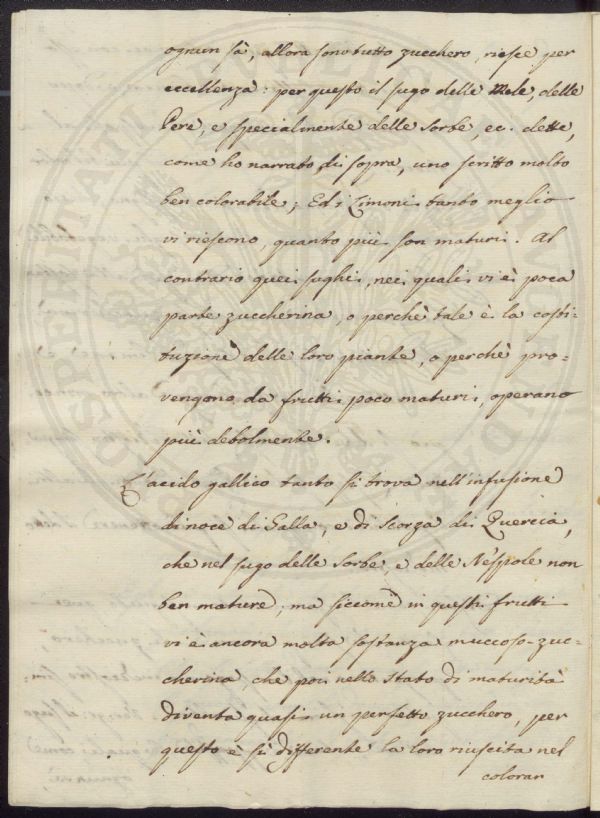 ognun sà, allora sono tutto zucchero, riesce per
eccellenza: per questo il sugo delle Mele, delle
Pere, e specialmente delle Sorbe, ec. dette,
come ho narrato di sopra, uno scritto molto
ben colorabile; Ed i Limoni tanto meglio
vi riescono, quanto più son maturi. Al
contrario quei sughi, nei quali vi è poca
parte zuccherina, o perchè tale è la costi-
tuzione delle loro piante, o perchè pro-
vengono da frutti poco maturi, operano
più debolmente.
L'acido gallico tanto si trova nell'infusione
di noce di Galla, e di scorza di Quercia,
che nel sugo delle Sorbe, e delle Nespole non
ben mature; ma siccome in questi frutti
vi è ancora molta sostanza muccoso-zuc-
cherina, che poi nello stato di maturità
diventa quasi un perfetto zucchero, per
questo è sì differente la loro riuscita nel
colorar